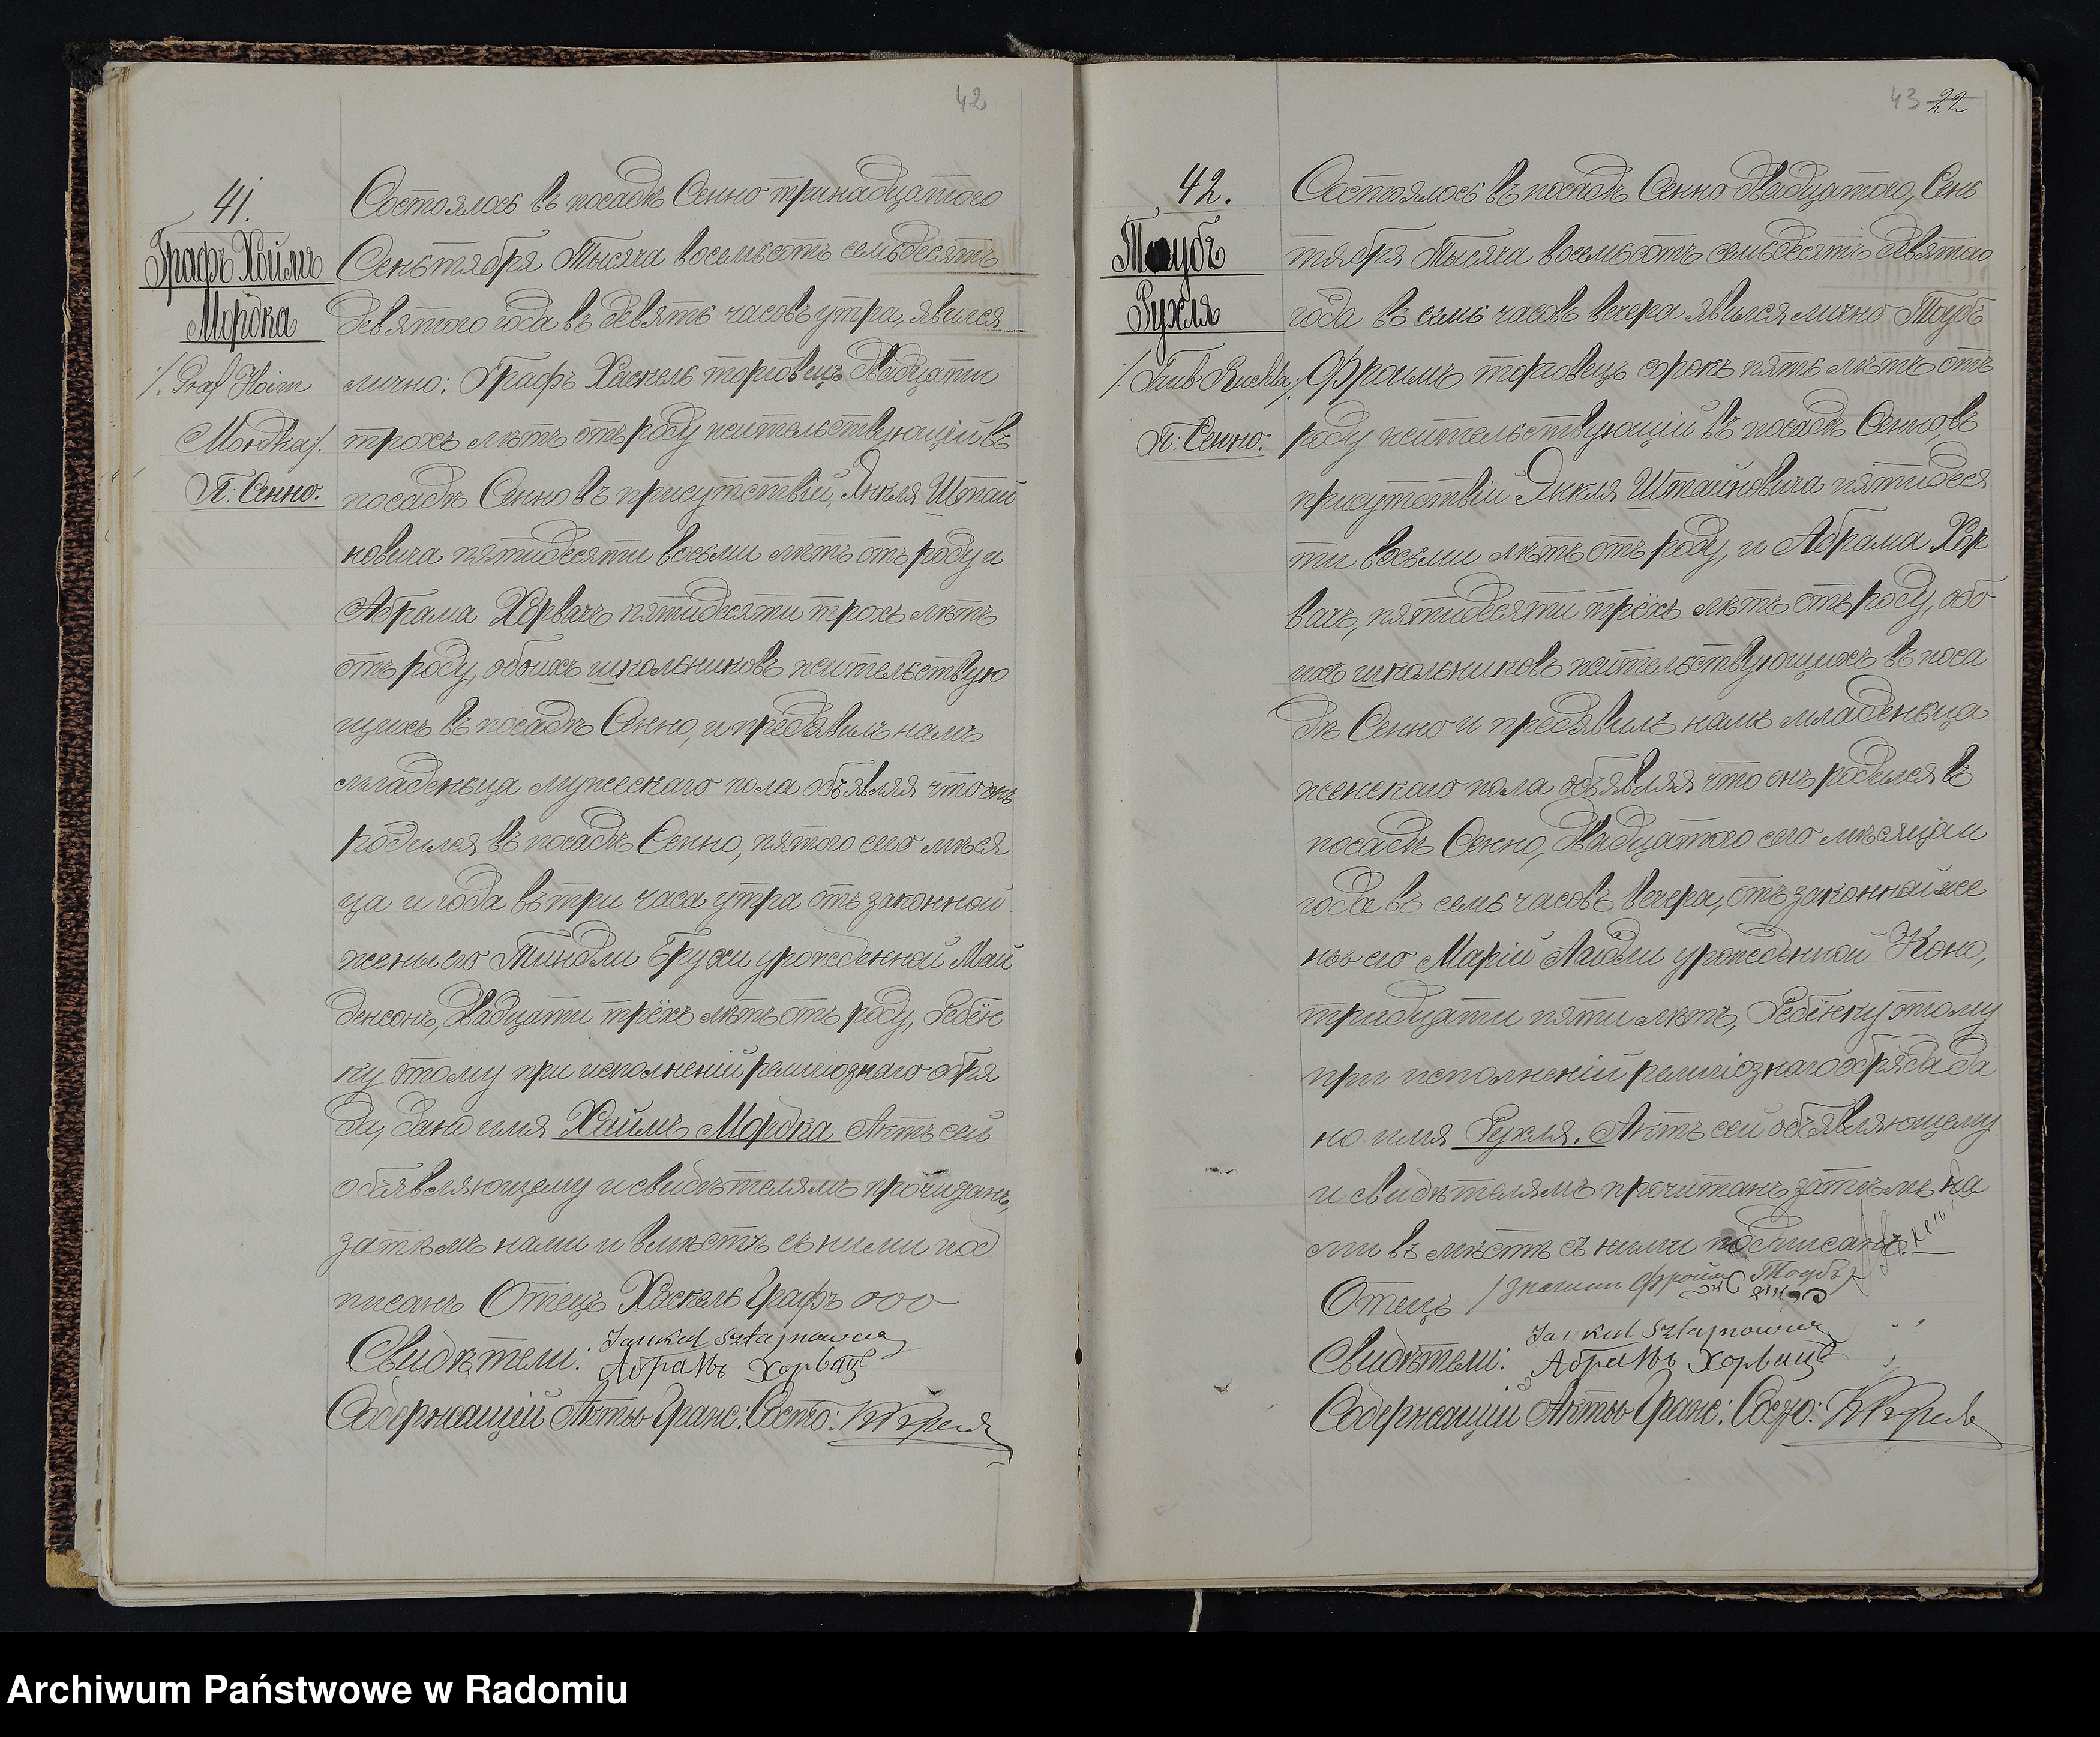 42
41.
Графъ Хаимъ
Мордка
/. Graf Haim
Mordka/.
П. Сенно.
Состоялось въ посадѣ Сенно тринадцатого
Сентября Тысяча восемьсотъ семьдесятъ
девятого года въ девять часовъ утра, явился
лично: Графъ Хаскель торговецъ двадцати
трохъ лѣтъ отъ роду жительствующій въ
посадѣ Сенно въ присутствіи, Янкля Штай
новича пятидесяти восьми лѣтъ отъ роду и
Абрама Хорвачъ пятидесяти трохъ лѣтъ
отъ роду, обоихъ школьниковъ жительствую
щихъ въ посадѣ Сенно, и предъявилъ намъ
младенца мужескаго пола объявляя что онъ
родился въ посадѣ Сенно, пятого сего мѣся
ца и года въ три часа утра отъ законной
жены его Тиндли Брухи урожденной Май
денсонъ, двадцати трёхъ лѣтъ отъ роду, Ребён
ку этому при исполненій религіознаго обря
да, дано имя Хаймъ Мордка Актъ сей
объявляющему и свидѣтелямъ прочитанъ,
затѣмъ нами и вмѣстѣ съ ними под
писанъ Отецъ Хаскель Графъ ооо
Свидѣтели: Jankiel Sztajnowicz
Абрамъ Хорвацъ
Содержащій Акты Гражд: Состо:
43 22
42.
Таубъ
Рухля
/. Taub Ruchla /.
П. Сенно.
Состоялось въ посадѣ Сенно двадцатого, Сен
тября Тысяча восемьсотъ семьдесятъ девятаго
года въ семь часовъ вечера явился лично Таубъ
Фроимъ торговецъ сорокъ пять лѣтъ отъ
роду жительствующій въ посадѣ Сенно, въ
присутствіи Янкля Штайновича пятидеся
ти восьми лѣтъ отъ роду, и Абрама Хор
вачъ, пятидесяти трёхъ лѣтъ отъ роду, обо
ихъ школьниковъ жительствующихъ въ поса
дѣ Сенно и предъявилъ намъ младенца
женскаго пола объявляя что онъ родился въ
посадѣ Сенно, двадцатого сего мѣсяца и
года въ семь часовъ вечера, отъ законной же
ны его Марій Айдли урожденной Кона,
тридцати пяти лѣтъ, Ребёнку этому
при исполненій религіознаго обряда да
но имя Рухля. Актъ сей объявляющему
и свидѣтелямъ прочитанъ затѣмъ на
ми вмѣстѣ съ ними подписанъ.
Отецъ / значитъ Фроимъ Таубъ /
Свидѣтели: Jankiel Sztajnowicz
Абрамъ Хорвацъ
Содержащій Акты Гражд: Состо:
Archiwum Państwowe w Radomiu